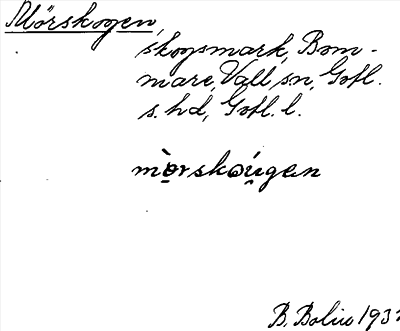 Mörskogen,
skogsmark, Bom-
mare, Vall sn, Gotl.
s. hd, Gotl. l.
mə̀rskəú̯gen
B. Bolin